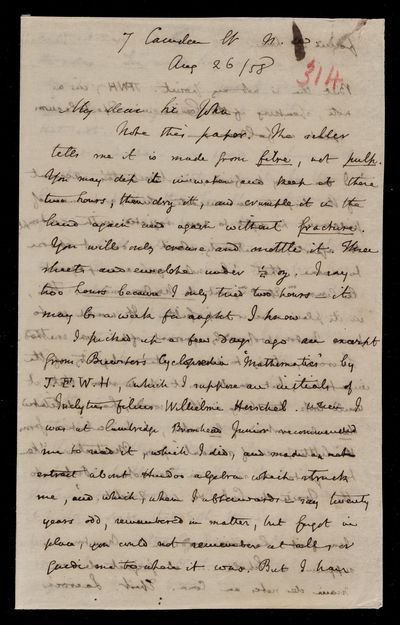 7 Camden St N.W.
Aug 26/58
314
My dear Sir John
Note this paper. The seller
tells me it is made from fibre, not pulp.
You may dip it in water and keep it there
two hours, then dry it, and crumple it in the
hand again and again without fracture.
You will only crease and mottle it. Three
sheets and envelope under ½ oz. I say
two hours because I only tried two hours it
may be a week for aught I know
I picked up a few days ago an excerpt
from Brewster's Cyclopædia "Mathematics" by
J.F.W.H, which I suppose are initials of
Inclytus filius Wilhelmi Herschel. When I
was at Cambridge Bromhead Junior recommended
me to read it, which I did, and made a note
extract about Hindoo algebra which struck
me, and which, when I afterwards say twenty
years odd, remembered in matter, but forgot in
place, you could not remember at all, or
guide me to where it was. But I have